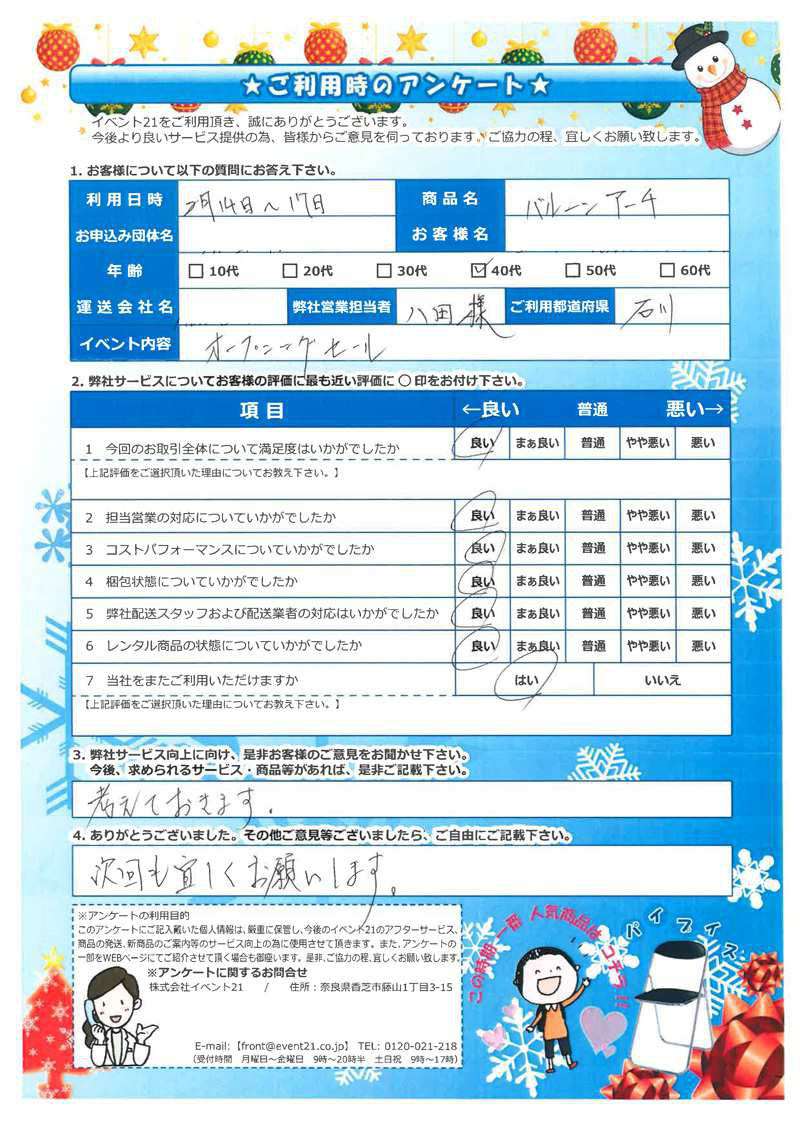 ★ご利用時のアンケート★
イベント21をご利用頂き、誠にありがとうございます。
今後より良いサービス提供の為、皆様からご意見を伺っております。ご協力の程、宜しくお願い致します。
1. お客様について以下の質問にお答え下さい。
利用日時 2月14日～17日 商品名 バルーンアーチ
お申込み団体名 お客様名
年齢 □10代 □20代 □30代 ☑40代 □50代 □60代
運送会社名 弊社営業担当者 八田様 ご利用都道府県 石川
イベント内容 オープニングセール
2. 弊社サービスについてお客様の評価に最も近い評価に〇印をお付け下さい。
項目 ←良い 普通 悪い→
1 今回のお取引全体について満足度はいかがでしたか 良い まぁ良い 普通 やや悪い 悪い
【上記評価をご選択頂いた理由についてお教え下さい。】
2 担当営業の対応についていかがでしたか 良い まぁ良い 普通 やや悪い 悪い
3 コストパフォーマンスについていかがでしたか 良い まぁ良い 普通 やや悪い 悪い
4 梱包状態についていかがでしたか 良い まぁ良い 普通 やや悪い 悪い
5 弊社配送スタッフおよび配送業者の対応はいかがでしたか 良い まぁ良い 普通 やや悪い 悪い
6 レンタル商品の状態についていかがでしたか 良い まぁ良い 普通 やや悪い 悪い
7 当社をまたご利用いただけますか はい いいえ
【上記評価をご選択頂いた理由についてお教え下さい。】
3. 弊社サービス向上に向け、是非お客様のご意見をお聞かせ下さい。
今後、求められるサービス・商品等があれば、是非ご記載下さい。
考えておきます。
4. ありがとうございました。その他ご意見等ございましたら、ご自由にご記載下さい。
次回も宜しくお願いします。
※アンケートの利用目的
このアンケートにご記入戴いた個人情報は、厳重に保管し、今後のイベント21のアフターサービス、
商品の発送、新商品のご案内等のサービス向上の為に使用させて頂きます。また、アンケートの
一部をWEBページにてご紹介させて頂く場合も御座います。是非、ご協力の程、宜しくお願い致します。
※アンケートに関するお問合せ
株式会社イベント21 / 住所：奈良県香芝市藤山1丁目3-15
E-mail:【front@event21.co.jp】 TEL: 0120-021-218
（受付時間 月曜日～金曜日 9時～20時半 土日祝 9時～17時）
この時期一番人気商品はコチラ!!
パイプイス